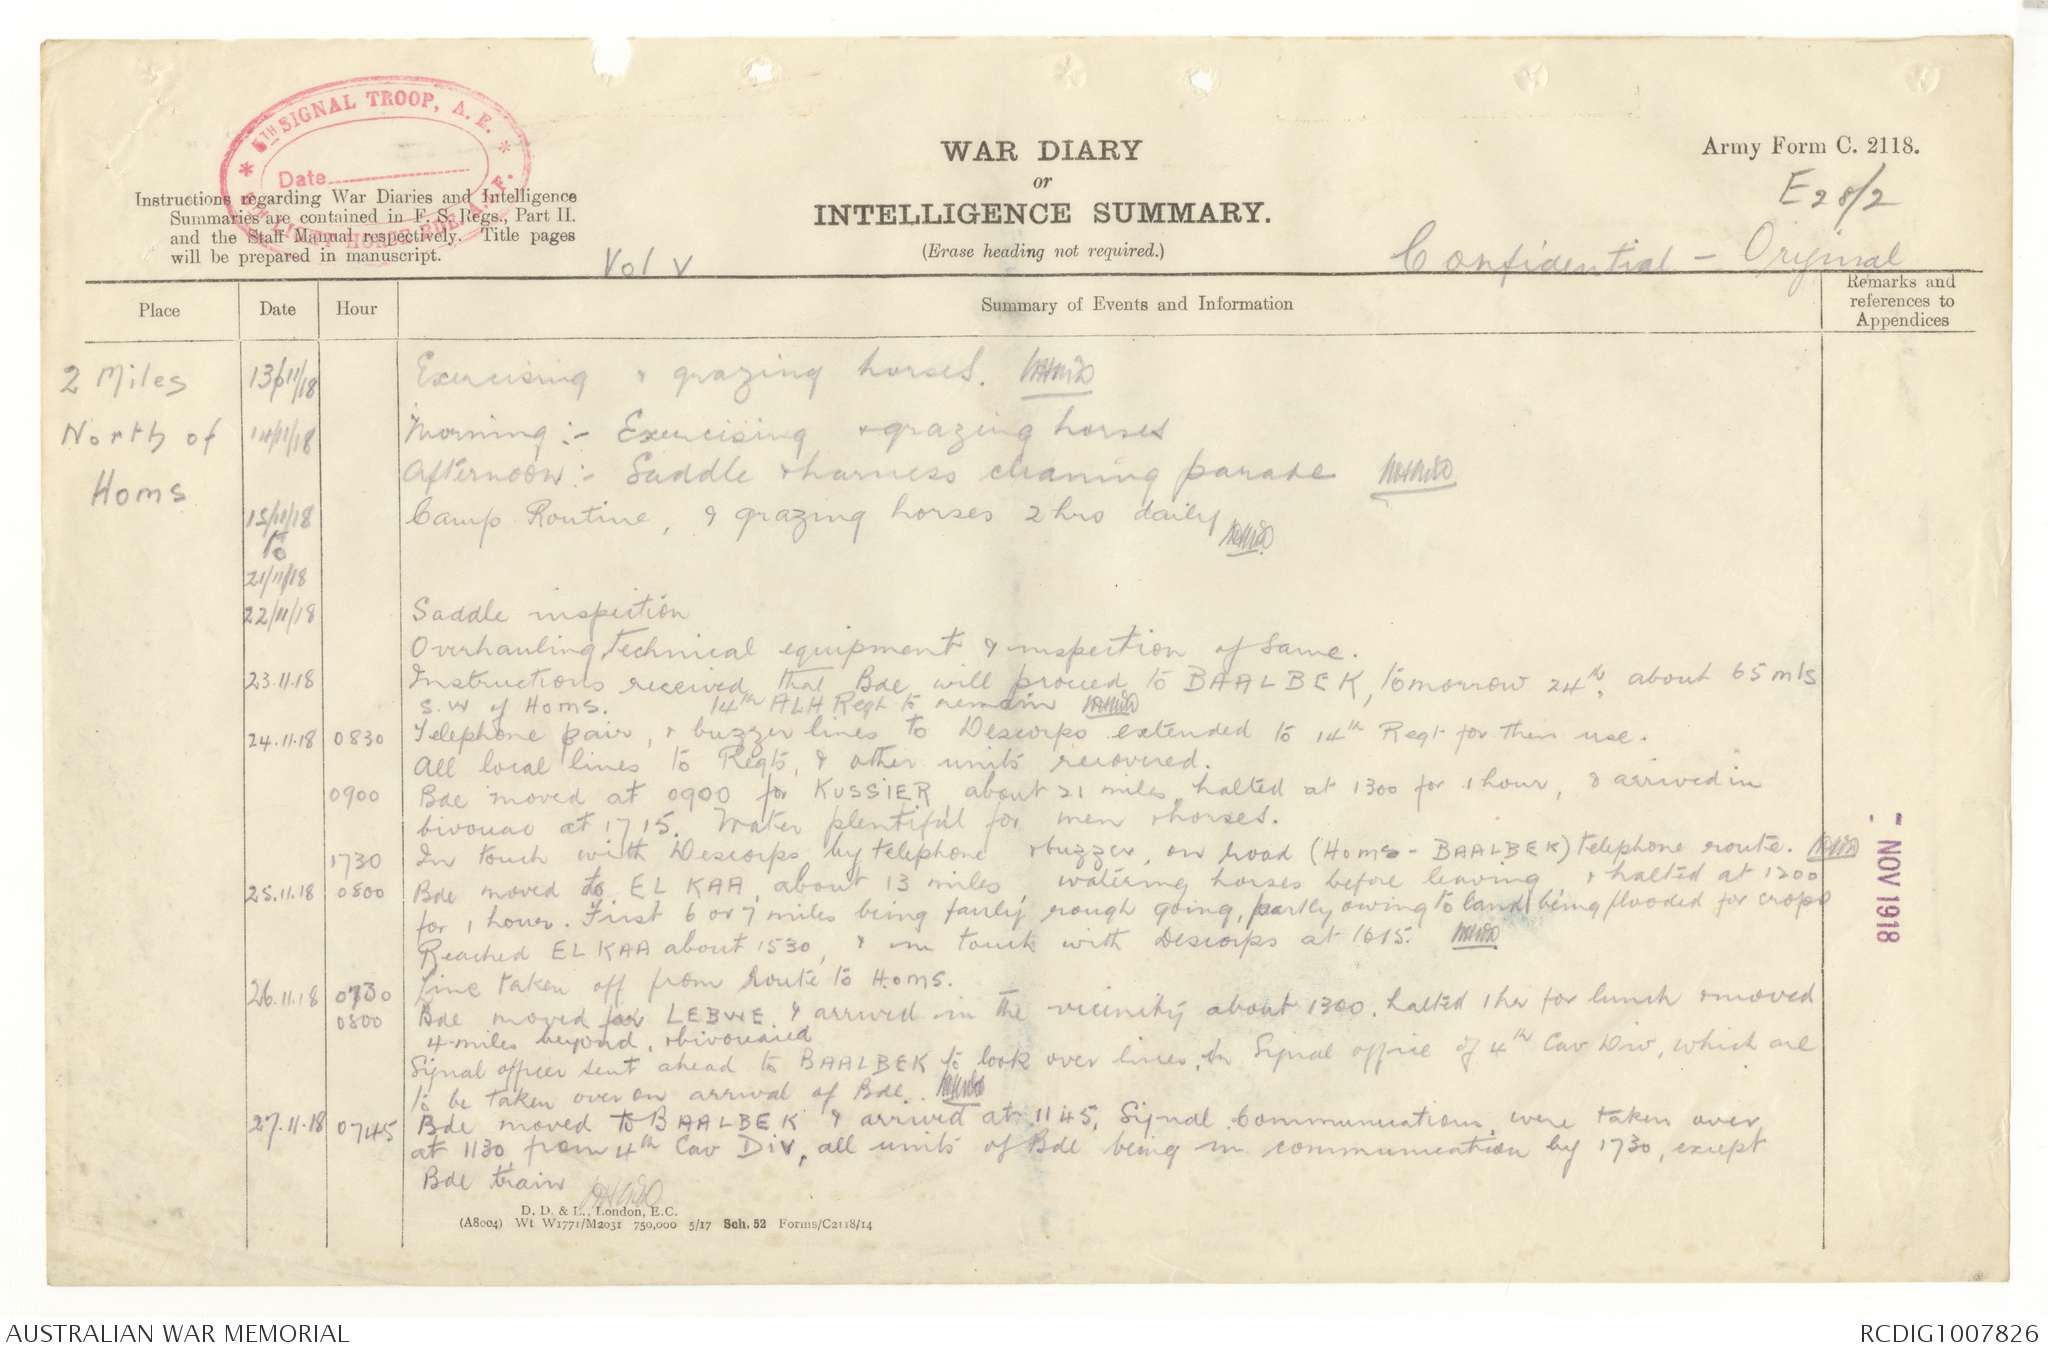 TH SIGNAL TROOP, A. E.
Date
TH LIGHT HORSE BDE A. I. F.
WAR DIARY
or
INTELLIGENCE SUMMARY.
(Erase heading not required.)
Army Form C. 2118.
E28/2
Instructions regarding War Diaries and Intelligence
Summaries are contained in F. S. Regs., Part II.
and the Staff Manual respectively. Title pages
will be prepared in manuscript.
Vol V
Confidential - Original
Place Date Hour Summary of Events and Information Remarks and references to Appendices
2 Miles 13/11/18 Exercising & grazing horses.
North of 14/11/18 Morning :- Exercising & grazing horses
Homs Afternoon :- Saddle & harness cleaning parade
15/11/18 Camp Routine, & grazing horses 2 hrs daily
to
21/11/18
22/11/18 Saddle inspection
Overhauling Technical equipment & inspection of same.
23.11.18 Instructions received that Bde will proceed to BAALBEK, tomorrow 24th, about 65 mls
S.W of Homs. 14th ALH Regt to remain
24.11.18 0830 Telephone pair, & buzzer lines to Descorps extended to 14th Regt for their use.
All local lines to Regts, & other units recovered.
0900 Bde moved at 0900 for KUSSIER about 21 miles, halted at 1300 for 1 hour, & arrived in
bivouac at 1715. Water plentiful for men & horses.
1730 In touch with Descorps by telephone & buzzer, on road (Homs - BAALBEK) telephone route.
25.11.18 0800 Bde moved to EL KAA, about 13 miles watering horses before leaving & halted at 1200
for 1 hour. First 6 or 7 miles being fairly rough going, partly owing to land being flooded for crops
Reached EL KAA about 1530, & in touch with Descorps at 1615.
26.11.18 0730 Line taken off from route to Homs.
0800 Bde moved for LEBWE & arrived in the vicinity about 1300. halted 1 hr for lunch & moved
4 miles beyond, & bivouaced
Signal officer sent ahead to BAALBEK to look over lines, & Signal office of 4th Cav Div, which are
to be taken over on arrival of Bde.
27.11.18 0745 Bde moved to BAALBEK & arrived at 1145, Signal Communications were taken over
at 1130 from 4th Cav Div, all units of Bde being in communication by 1730, except
Bde train
- NOV 1918
D. D. & L., London, E.C.
(A8004) Wt W1771/M2031 750,000 5/17 Sch. 52 Forms/C2118/14
AUSTRALIAN WAR MEMORIAL
RCDIG1007826